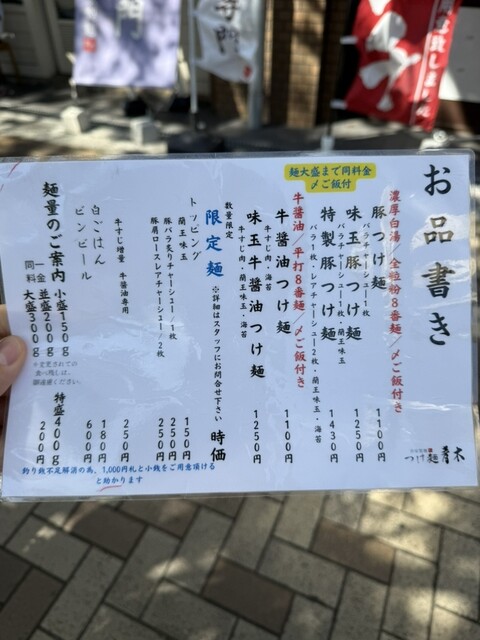 門
寺門
お品書き
麺大盛まで同料金
〆ご飯付
濃厚白湯/全粒粉8番麺/〆ご飯付き
豚つけ麺 1100円
バラチャーシュー1枚
味玉豚つけ麺 1250円
バラチャーシュー1枚・蘭王味玉
特製豚つけ麺 1430円
バラ1枚・レアチャーシュー2枚・蘭王味玉・海苔
牛醤油/平打8番麺/〆ご飯付き
牛醤油つけ麺 1100円
牛すじ肉・海苔
味玉牛醤油つけ麺 1250円
牛すじ肉・蘭王味玉・海苔
数量限定
限定麺 ※詳細はスタッフにお問合せ下さい 時価
トッピング
蘭王味玉 150円
豚バラ炙りチャーシュー/1枚 250円
豚肩ロースレアチャーシュー/2枚 250円
牛すじ増量 牛醤油専用 250円
白ごはん 180円
ビンビール 600円
麺量のご案内
同一料金
小盛150g
並盛200g
大盛300g
特盛400g 200円
※変更されての
食べ残しは、
御遠慮ください。
釣り銭不足解消の為、1,000円札と小銭をご用意頂ける
と助かります
つけ麺 青木